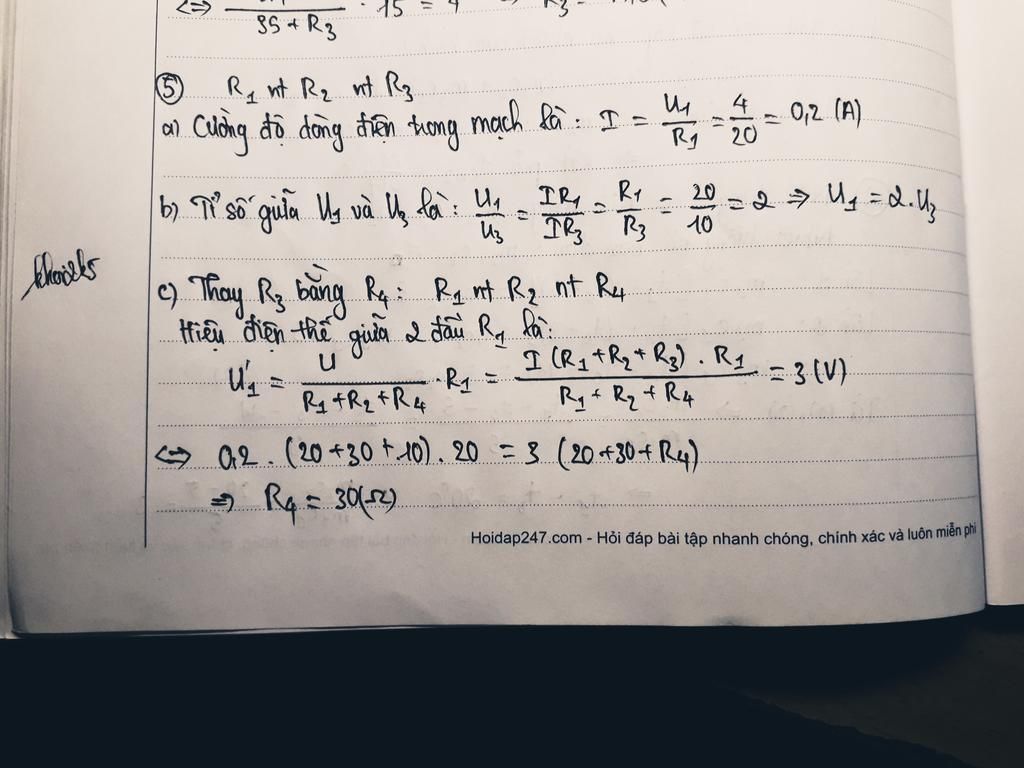 ⇔ ─── . 15 = 4 ⇒ R3 =
35 + R3
⑤ R1 nt R2 nt R3
a) Cường độ dòng điện trong mạch là: I = U1/R1 = 4/20 = 0,2 (A)
b) Tỉ số giữa U1 và U3 là: U1/U3 = IR1/IR3 = R1/R3 = 20/10 = 2 ⇒ U1 = 2.U3
c) Thay R3 bằng R4: R1 nt R2 nt R4
Hiệu điện thế giữa 2 đầu R1 là:
U'1 = U/(R1+R2+R4) . R1 = I(R1+R2+R3).R1/(R1+R2+R4) = 3 (V)
⇔ 0,2 . (20+30+10) . 20 = 3 (20+30+R4)
⇒ R4 = 30(Ω)
Hoidap247.com - Hỏi đáp bài tập nhanh chóng, chính xác và luôn miễn phí